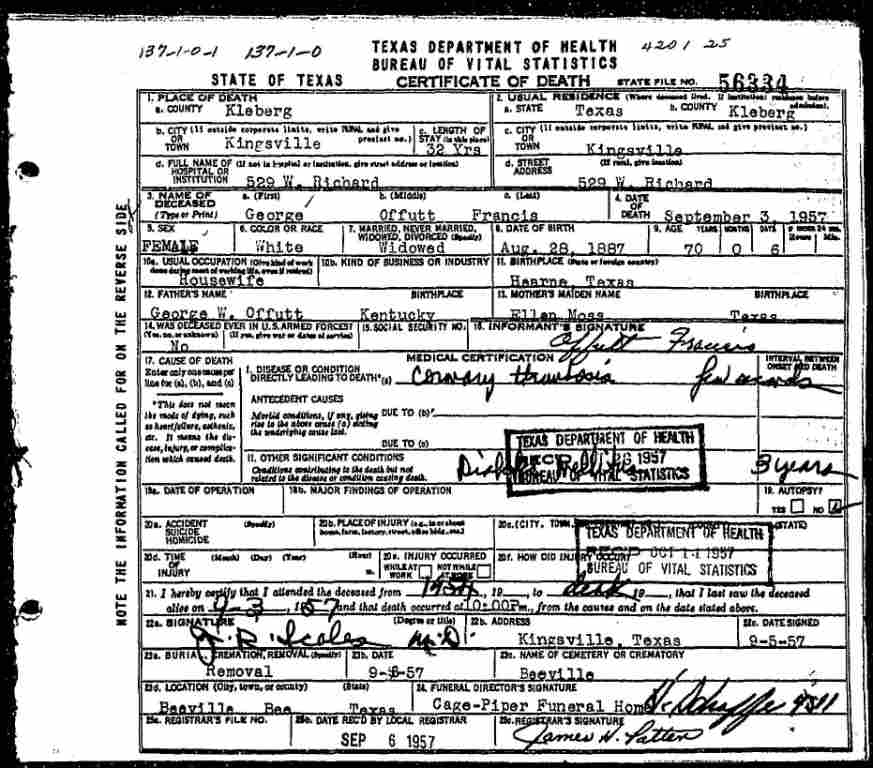 137-1-0-1 137-1-0 TEXAS DEPARTMENT OF HEALTH 4201 25
BUREAU OF VITAL STATISTICS
STATE OF TEXAS CERTIFICATE OF DEATH STATE FILE NO. 56334
1. PLACE OF DEATH
a. COUNTY Kleberg
2. USUAL RESIDENCE (Where deceased lived. If institution: residence before admission).
a. STATE Texas b. COUNTY Kleberg
b. CITY (If outside corporate limits, write RURAL and give precinct no.)
OR TOWN Kingsville
c. LENGTH OF STAY (in this place)
32 Yrs
c. CITY (If outside corporate limits, write RURAL and give precinct no.)
OR TOWN Kingsville
d. FULL NAME OF (If not in hospital or institution, give street address or location)
HOSPITAL OR INSTITUTION 529 W. Richard
d. STREET ADDRESS (If rural, give location)
529 W. Richard
3. NAME OF DECEASED (Type or Print)
a. (First) b. (Middle) c. (Last)
George Offutt Francis
4. DATE OF DEATH September 3, 1957
5. SEX
FEMALE
6. COLOR OR RACE
White
7. MARRIED, NEVER MARRIED, WIDOWED, DIVORCED (Specify)
Widowed
8. DATE OF BIRTH
Aug. 28, 1887
9. AGE YEARS MONTHS DAYS If UNDER 24 HRS. Hours Min.
70 0 6
10a. USUAL OCCUPATION (Give kind of work done during most of working life, even if retired)
Housewife
10b. KIND OF BUSINESS OR INDUSTRY
11. BIRTHPLACE (State or foreign country)
Hearne, Texas
12. FATHER'S NAME BIRTHPLACE
George W. Offutt Kentucky
13. MOTHER'S MAIDEN NAME BIRTHPLACE
Ellen Moss Texas
14. WAS DECEASED EVER IN U.S. ARMED FORCES?
(Yes, no, or unknown) (If yes, give war or dates of service)
No
15. SOCIAL SECURITY NO.
16. INFORMANT'S SIGNATURE
Offutt Francis
17. CAUSE OF DEATH
Enter only one cause per line for (a), (b), and (c)
*This does not mean the mode of dying, such as heart failure, asthenia, etc. It means the disease, injury, or complication which caused death.
MEDICAL CERTIFICATION
INTERVAL BETWEEN ONSET AND DEATH
I. DISEASE OR CONDITION
DIRECTLY LEADING TO DEATH*(a) Coronary
ANTECEDENT CAUSES
Morbid conditions, if any, giving rise to the above cause (a) stating the underlying cause last.
DUE TO (b)
DUE TO (c)
II. OTHER SIGNIFICANT CONDITIONS
Conditions contributing to the death but not related to the disease or condition causing death.
3 years
TEXAS DEPARTMENT OF HEALTH
1957
BUREAU OF VITAL STATISTICS
18a. DATE OF OPERATION
18b. MAJOR FINDINGS OF OPERATION
19. AUTOPSY?
YES NO
20a. ACCIDENT SUICIDE HOMICIDE (Specify)
20b. PLACE OF INJURY (e.g., in or about home, farm, factory, street, office bldg., etc.)
20c. (CITY, TOWN, (STATE)
TEXAS DEPARTMENT OF HEALTH
REC'D OCT 11 1957
BUREAU OF VITAL STATISTICS
20d. TIME OF INJURY (Month) (Day) (Year) (Hour) m.
20e. INJURY OCCURRED
WHILE AT WORK NOT WHILE AT WORK
20f. HOW DID INJURY OCCUR?
21. I hereby certify that I attended the deceased from , 19 , to death 19 , that I last saw the deceased
alive on 9-3, 1957 and that death occurred at 10:00P m., from the causes and on the date stated above.
22a. SIGNATURE (Degree or title)
J. R. Scales M.D.
22b. ADDRESS
Kingsville, Texas
22c. DATE SIGNED
9-5-57
23a. BURIAL, CREMATION, REMOVAL (Specify)
Removal
23b. DATE
23c. NAME OF CEMETERY OR CREMATORY
Beeville
23d. LOCATION (City, town, or county) (State)
Beeville Bee Texas
24. FUNERAL DIRECTOR'S SIGNATURE
Cage-Piper Funeral Home
25a. REGISTRAR'S FILE NO.
25b. DATE REC'D BY LOCAL REGISTRAR
SEP 6 1957
25c. REGISTRAR'S SIGNATURE
James H. Patten
NOTE THE INFORMATION CALLED FOR ON THE REVERSE SIDE